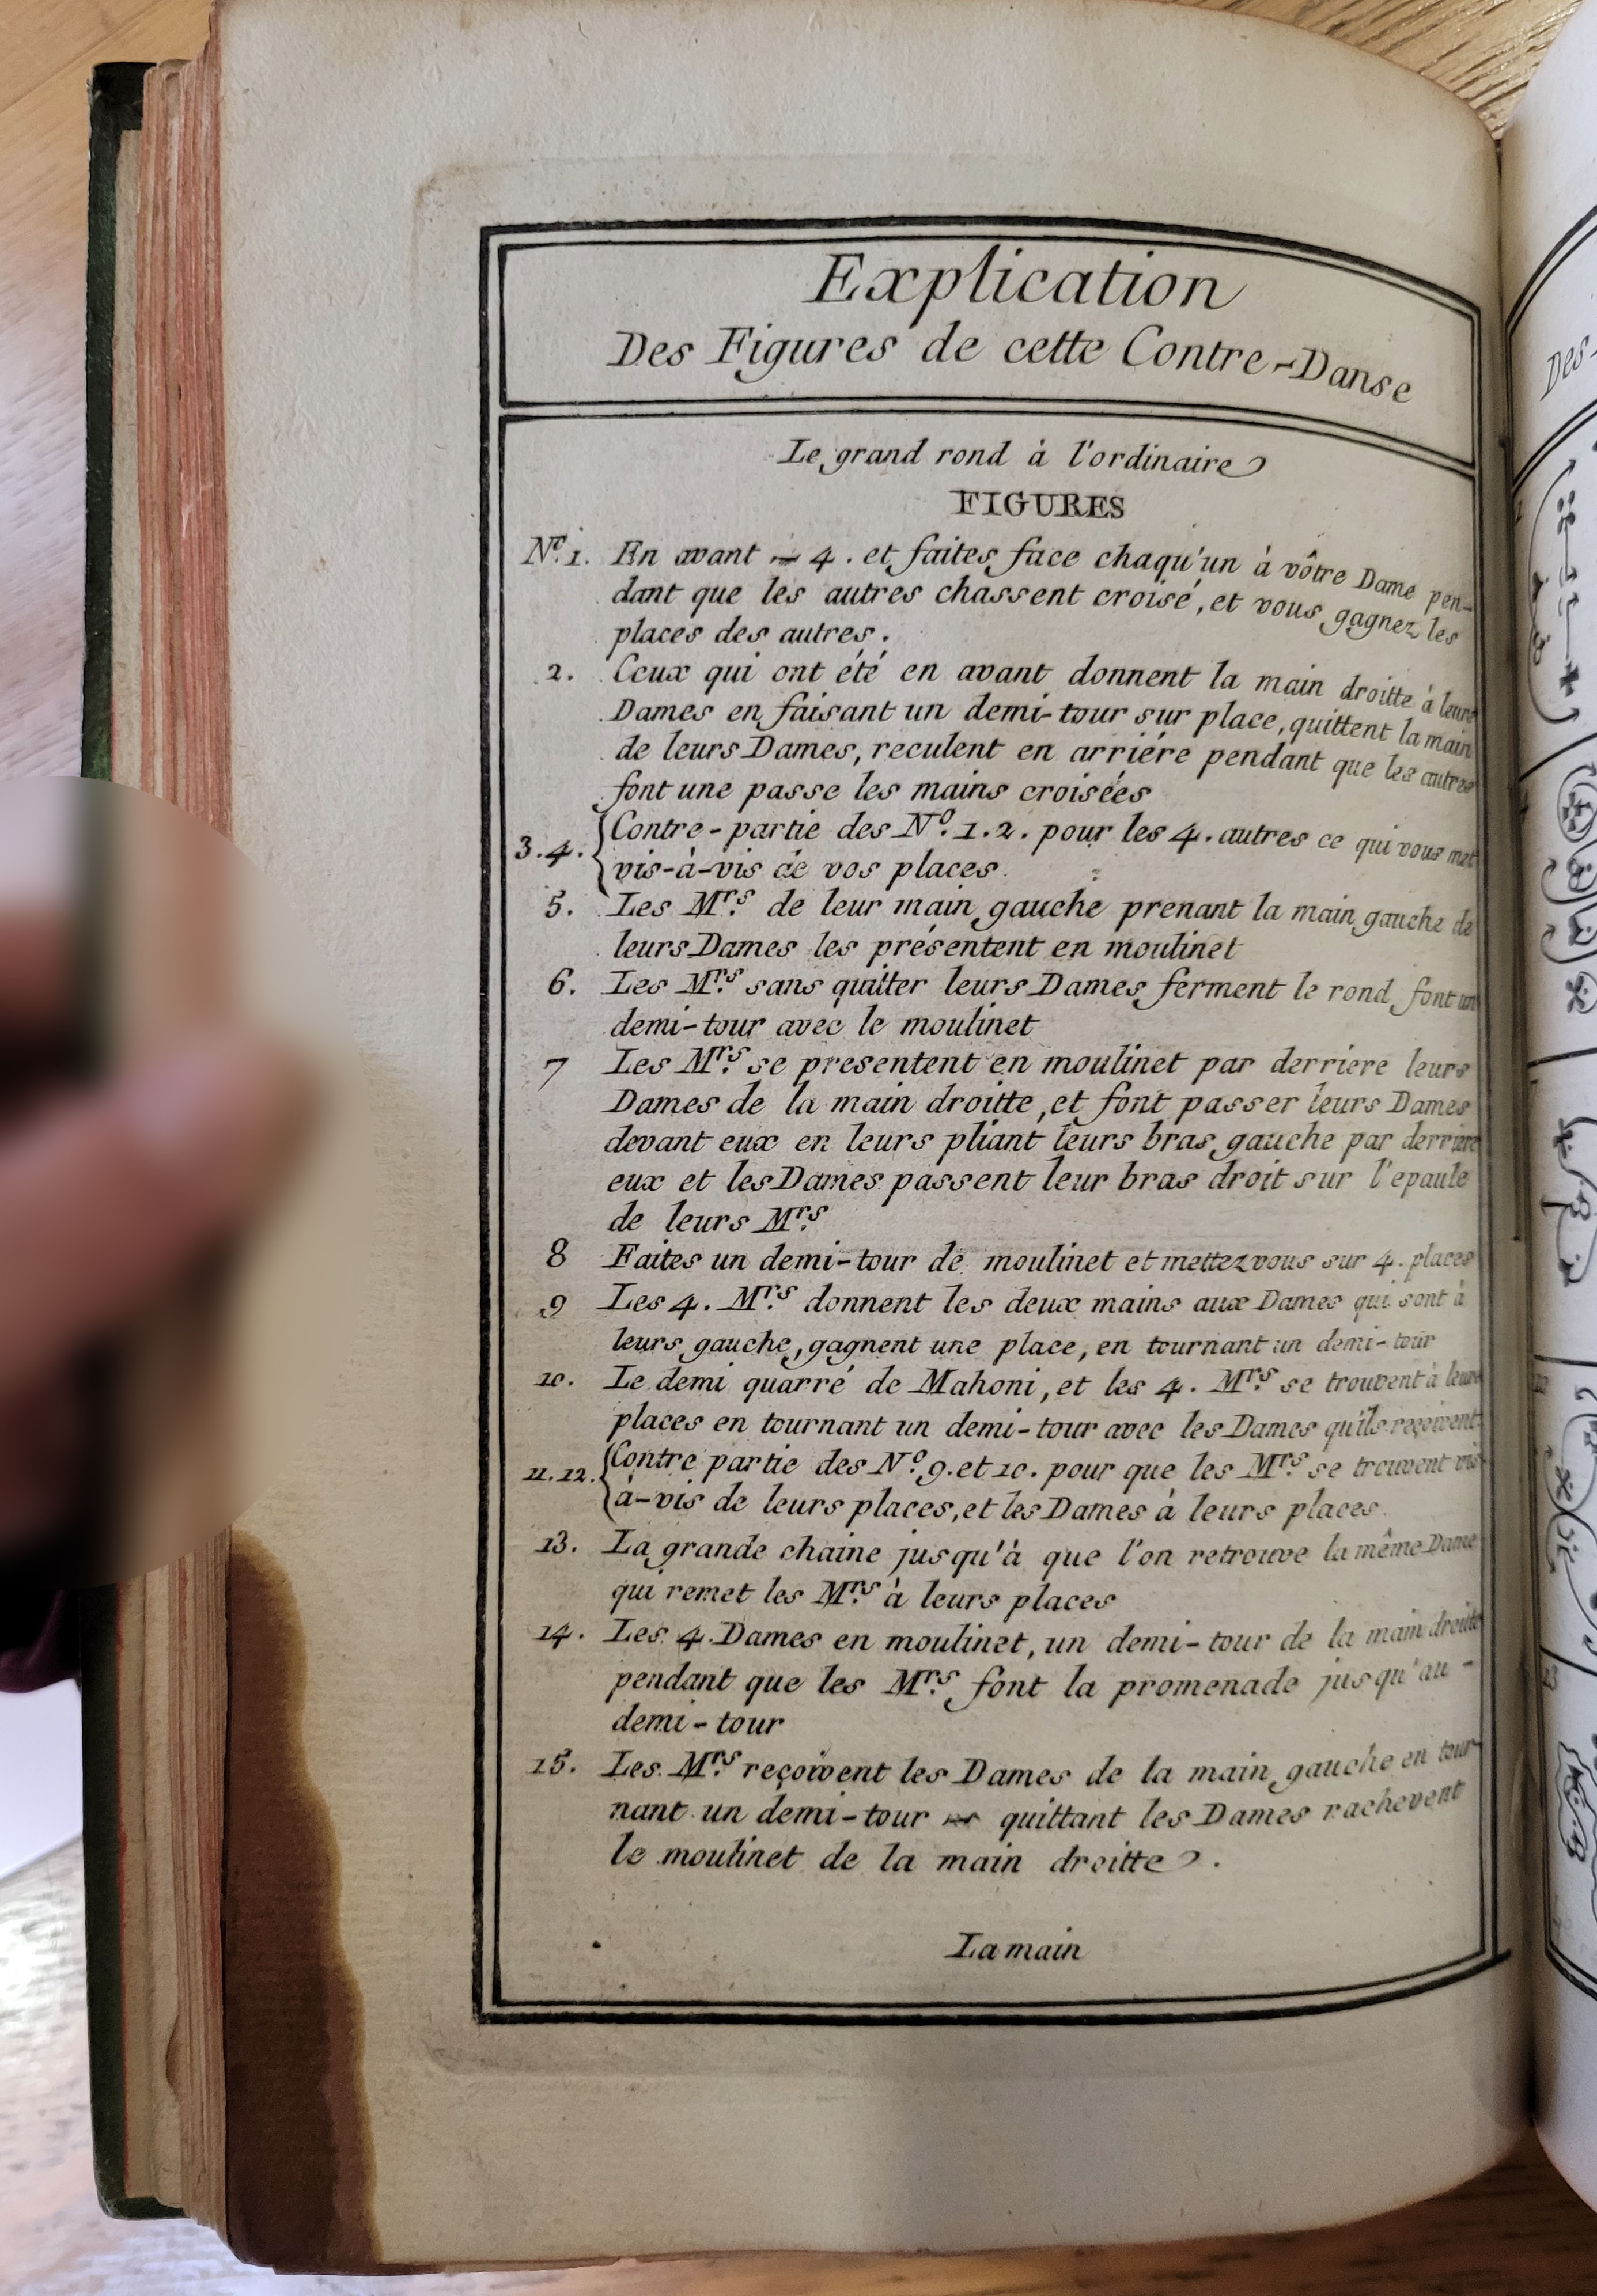 Explication
Des Figures de cette Contre-Danse
Le grand rond à l'ordinaire
FIGURES
No. 1. En avant 4. et faites face chaqu'un à vôtre Dame pen-
dant que les autres chassent croisé, et vous gagnez les
places des autres.
2. Ceux qui ont été en avant donnent la main droitte à leurs
Dames en faisant un demi-tour sur place, quittent la main
de leurs Dames, reculent en arriére pendant que les autres
font une passe les mains croisées
3.4. Contre-partie des No. 1.2. pour les 4. autres ce qui vous met
vis-à-vis de vos places.
5. Les Mrs. de leur main gauche prenant la main gauche de
leurs Dames les présentent en moulinet
6. Les Mrs. sans quitter leurs Dames ferment le rond font un
demi-tour avec le moulinet
7 Les Mrs. se presentent en moulinet par derriere leurs
Dames de la main droitte, et font passer leurs Dames
devant eux en leurs pliant leurs bras gauche par derriere
eux et les Dames passent leur bras droit sur l'epaule
de leurs Mrs.
8 Faites un demi-tour de moulinet et mettez vous sur 4. places
9 Les 4. Mrs. donnent les deux mains aux Dames qui sont à
leurs gauche, gagnent une place, en tournant un demi-tour
10. Le demi quarré de Mahoni, et les 4. Mrs. se trouvent à leurs
places en tournant un demi-tour avec les Dames qu'ils reçoivent
11.12. Contre partie des No. 9. et 10. pour que les Mrs. se trouvent vis-
à-vis de leurs places, et les Dames à leurs places.
13. La grande chaine jusqu'à que l'on retrouve la même Dame
qui remet les Mrs. à leurs places
14. Les 4. Dames en moulinet, un demi-tour de la main droitte
pendant que les Mrs. font la promenade jusqu'au-
demi-tour
15. Les Mrs. reçoivent les Dames de la main gauche en tour-
nant un demi-tour quittant les Dames rachevent
le moulinet de la main droitte.
La main
Des